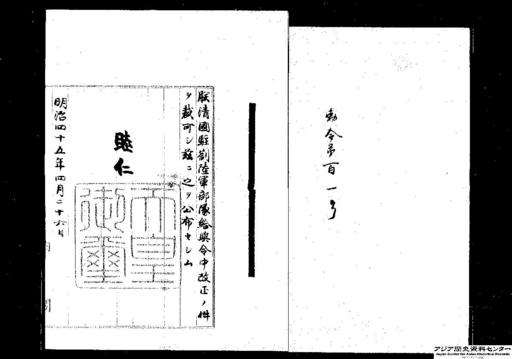 勅令第百一号
朕清國駐劄陸軍部隊給與令中改正ノ件
ヲ裁可シ茲ニ之ヲ公布セシム
睦仁
天皇御璽
明治四十五年四月二十六日
アジア歴史資料センター
Japan Center for Asian Historical Records